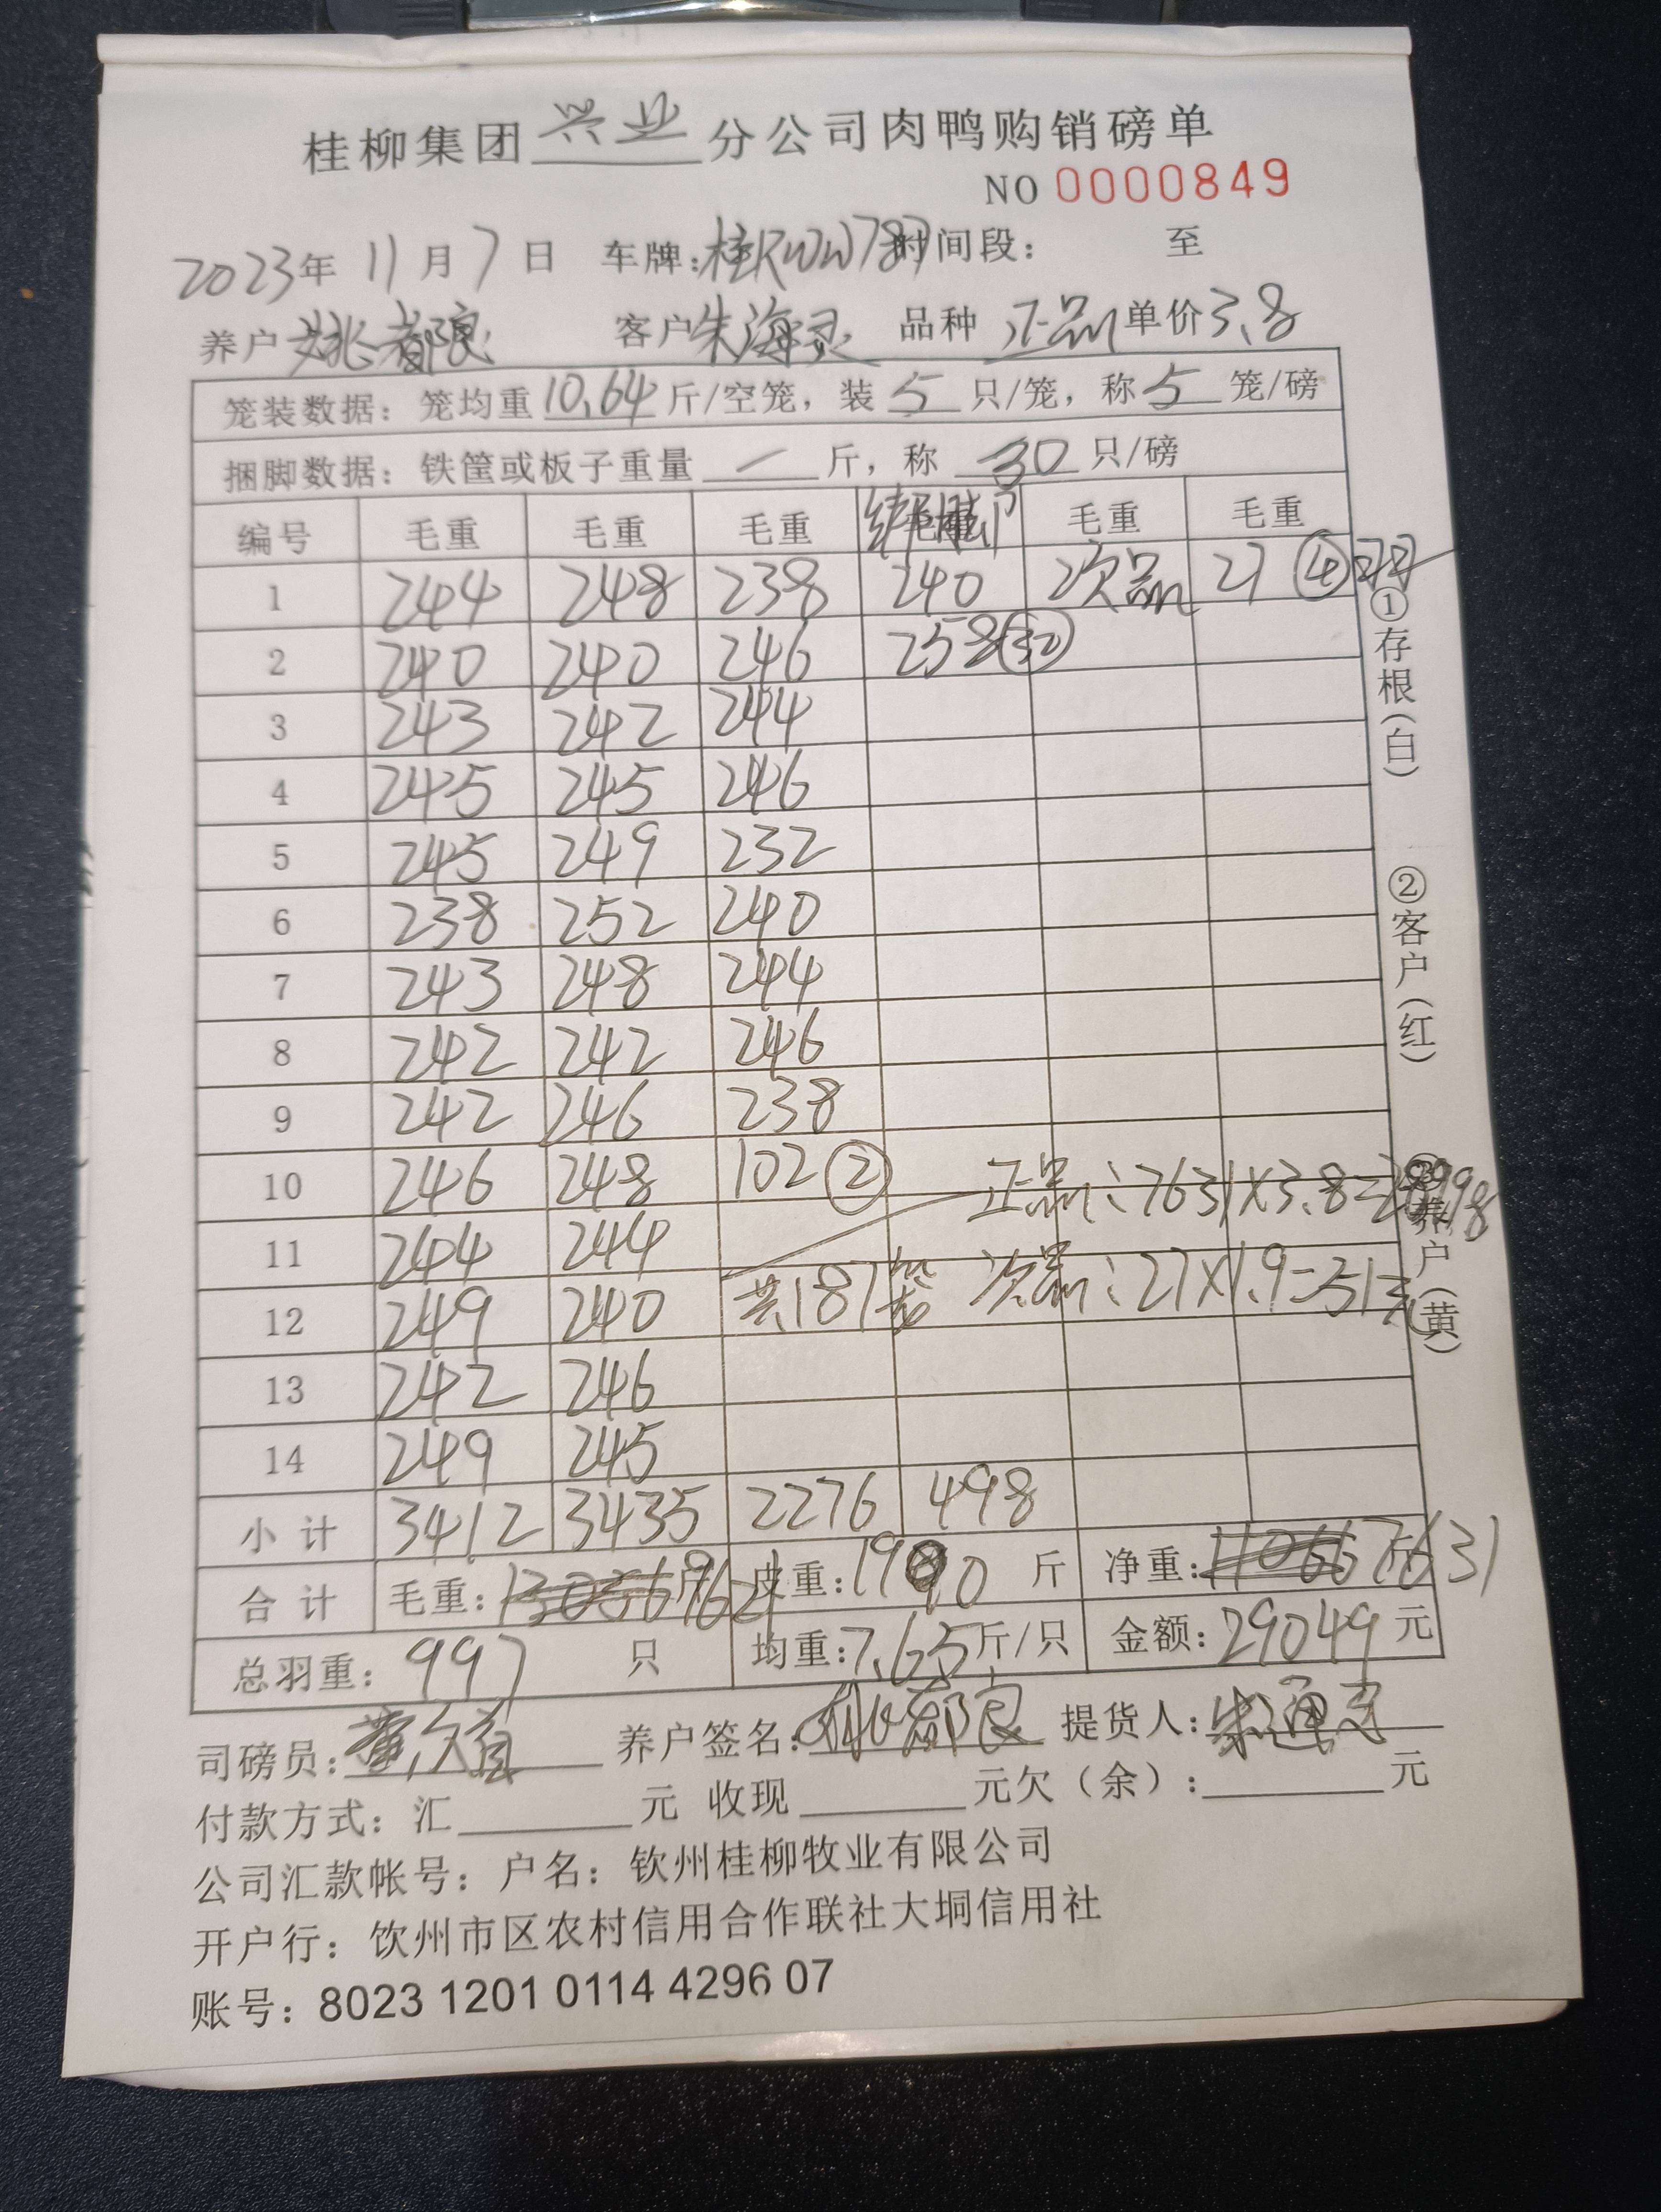 桂柳集团 兴业 分公司肉鸭购销磅单
NO 0000849
2023年 11月 7日 车牌:桂RWW787 时间段: 至
养户 姚都良 客户 朱海灵 品种 正品 单价 3.8
笼装数据: 笼均重 10.64 斤/空笼, 装 5 只/笼, 称 5 笼/磅
捆脚数据: 铁筐或板子重量 — 斤, 称 30 只/磅
编号 毛重 毛重 毛重 毛重 毛重 毛重
1 244 248 238 240 次品 27 ④
2 240 240 246 258 (32)
3 243 242 244
4 245 245 246
5 245 249 232
6 238 252 240
7 243 248 244
8 242 242 246
9 242 246 238
10 246 248 102 ② 正品:7631×3.8=28998
11 244 244
12 249 240 共187笼 次品:27×1.9=51元
13 242 246
14 249 245
小 计 3412 3435 2276 498
合 计 毛重: 9621 斤 皮重: 1990 斤 净重: 7631 斤
总羽重: 997 只 均重: 7.65 斤/只 金额: 29049 元
司磅员: 养户签名: 姚都良 提货人:
付款方式: 汇 元 收现 元欠(余): 元
公司汇款帐号: 户名: 钦州桂柳牧业有限公司
开户行: 钦州市区农村信用合作联社大垌信用社
账号: 8023 1201 0114 4296 07
①存根(白)
②客户(红)
③养户(黄)